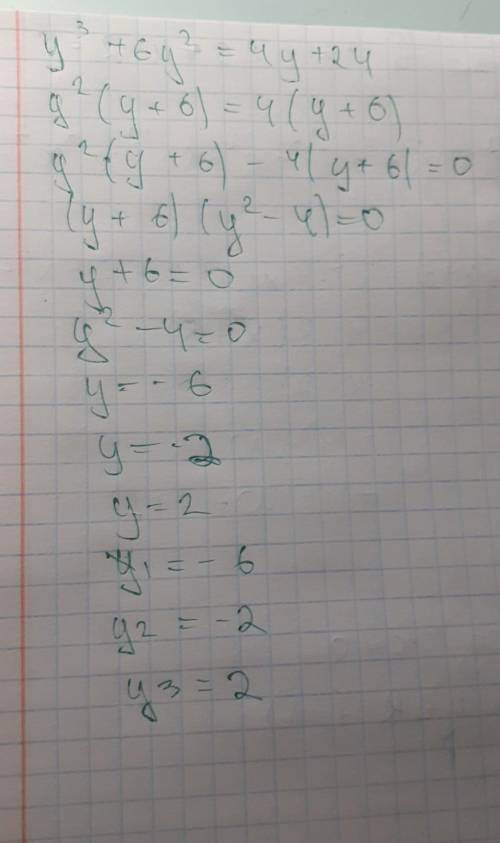 y³ + 6y² = 4y + 24
y²(y + 6) = 4(y + 6)
y²(y + 6) - 4(y + 6) = 0
(y + 6)(y² - 4) = 0
y + 6 = 0
y² - 4 = 0
y = - 6
y = -2
y = 2
y₁ = - 6
y₂ = -2
y₃ = 2